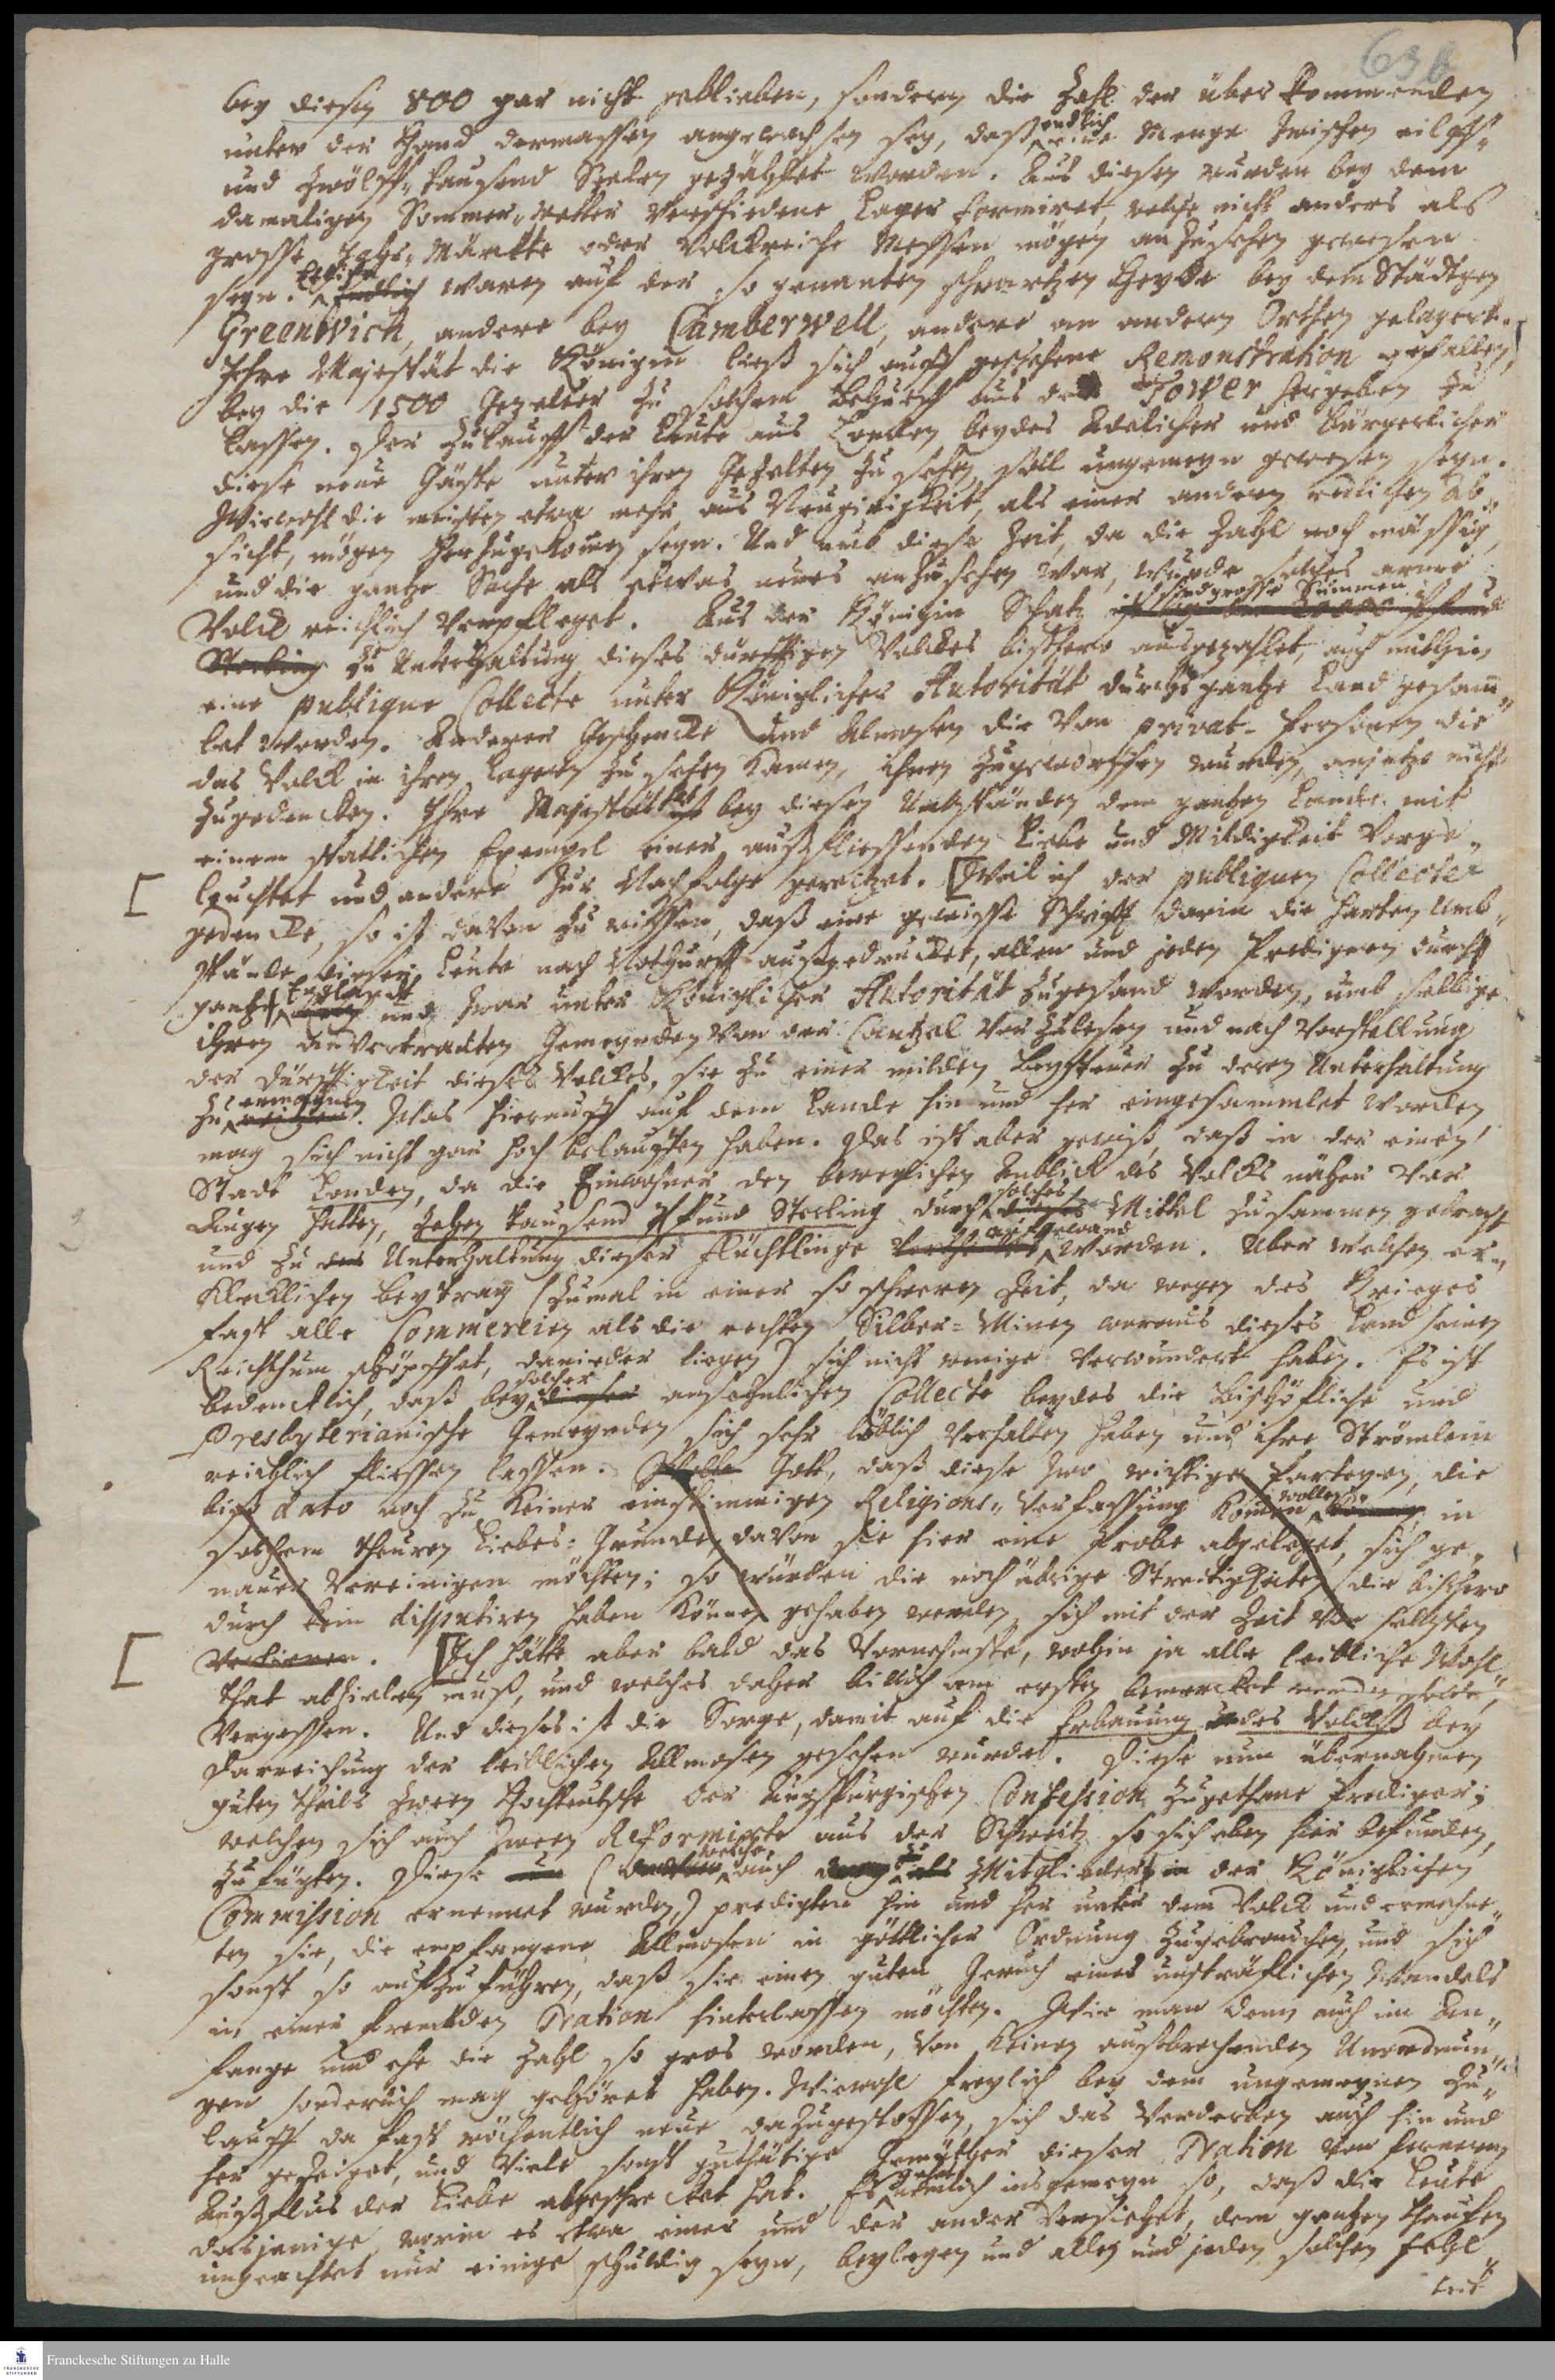 63b
bey diesen 800 gar nicht geblieben, sondern die Zahl der überkommenden
unter der Hand dermassen angewachsen sey, daß endlich eine Menge zwischen eilff-
und zwölff-tausend Seelen gezählet worden. Aus diesen wurden bey dem
damaligen Sommer-wetter verschiedene Lager formiret, welche nicht anders als
grosse Jahr-Märckte oder Volckreiche Messen mögen anzusehen gewesen
seyn. Etliche Endlich waren auf der so genanten schwartzen Heyde bey dem Städtgen
Greenwich, andere bey Camberwell, andere an andern Orthen gelagert.
Ihre Majestät die Königin ließ sich auff geschehene Remonstration gefallen,
bey die 1500 Gezelter zu solchem Behueff aus dem Tower hergeben zu
lassen. Der Zulauff der Leute aus London beydes Adelicher und bürgerlicher
diese neue Gäste unter ihren Gezelten zu sehen, soll ungemeyn gewesen seyn.
Wiewohl die meisten etwa mehr aus Neugirigkeit, als einer andern redlichen Ab-
sicht, mögen herzugekomen seyn. Und umb diese Zeit, da die Zahl noch mässig,
und die gantze Sache als etwas neues anzusehen war, wurde solches arme
Volck reichlich verpfleget. Aus der Königin Schatz sind grosse Summen 20000 Pfund
Sterling zu Unterhaltung dieses dürfftigen Volckes bisshero ausgezahlet, auch mithin
eine publique Collecte unter Königlicher Autorität durchs gantze Land gesam-
let worden. Anderer Geschencke und Almosen die von privat-Personen die
das Volck in ihren Lagern zu sehen kamen, ihnen zugeworffen wurden, anjetzo nicht
zugedencken. Ihre Majestät hat bey diesen Umbständen dem gantzen Lande mit
einem statlichen Exempel einer außfliessenden Liebe und Mildigkeit vorge-
leuchtet und andere zur Nachfolge gereitzet. [Weil ich der publiquen Collecte
gedencke, so ist davon zu wissen, daß eine gewisse Schrifft darin die harten Umb-
stände dieser Leute nach Nothdurfft außgedrucket, allen und jeden Predigern durch
gantz Englandt und zwar unter Königlicher Autorität zugesand worden, umb selbige
ihren anvertrauten Gemeynden von der Cantzel vorzulesen und nach Vorstellung
der Dürfftigkeit dieses Volckes, sie zu einer milden Beysteuer zu deren Unterhaltung
zu ermahnen reitzen. Was hierauff auf dem Lande hin und her eingesammlet worden
mag sich nicht gar hoch belauffen haben. Das ist aber gewiß, daß in der einen
Stadt London, da die Einwohner den beweglichen Anblick des Volcks näher vor
Augen hatten, Zehen tausend Pfund Sterling durch solches dieses Mittel zusammen gebracht
und zu der Unterhaltung dieser Flüchtlinge aufgewand worden. Über welchen er-
klecklichen Beytrag (zumal in einer so schweren Zeit, da wegen des Krieges
fast alle Commercien als die rechten Silber=Minen woraus dieses Land seinen
Reichthum schöpffet, danieder liegen) sich nicht wenige verwundert haben. Es ist
bedencklich, daß bey solcher dieser ansehnlichen Collecte beydes die Bischöfliche und
Presbyterianische Gemeynden sich sehr löblich verhalten haben und ihre Strömlein
reichlich fliessen lassen. Wolte Gott, daß diese zwo wichtige Parteyen, die
biß dato noch zu keiner einstimmigen Religions-Verfassung komen wollen können, in
solchem theuren Liebes-Grunde, davon sie hier eine Probe abgeleget, sich ge-
nauer vereinigen möchten; so würden die noch übrige Streitigkeiten, die bisshero
durch kein disputiren haben können gehoben werden, sich mit der Zeit von selbsten
verlieren. [Ich hätte aber bald das Vornehmste, wohin ja alle leibliche Wohl-
that abzielen muß, und welches daher billich am ersten bemercket werden solte,
vergessen. Und dieses ist die Sorge, damit auf die Erbauung des Volckß bey
Darreichung der leiblichen Allmosen gesehen wurde. Diese nun übernahmen
guten theils zween Hochteutsche der Augspurgischen Confession zugethane Prediger;
welchen sich auch zween Reformirte aus der Schweitz so sich eben hier befunden,
zufügten. Diese (welche auch zu Mitgliedern der Königlichen
Commission ernennet wurden,) predigten hin und her unter dem Volck und ermahne-
ten sie, die empfangene Allmosen in göttlicher Ordnung zugebrauchen, und sich
sonst so aufzuführen, daß sie einen guten Geruch eines unsträflichen Wandels
in einer frembden Nation hinterlassen möchten. Wie man denn auch im An-
fange und ehe die Zahl so gros worden, von keinen außbrechenden Unordnun-
gen sonderlich mag gehöret haben. Wiewohl freylich bey dem ungemeynen Zu-
lauff da fast wöchentlich neue dazugestossen, sich das Verderben auch hin und
her gezeiget, und viele sonst guthätige Gemüther dieser Nation von fernerem
Außflus der Liebe abgeschrecket hat. Es gehet nemlich insgemeyn so, daß die Leute
dasjenige, worin es etwa einer und der ander versiehet, dem gantzen Hauffen
ungeachtet nur einige schuldig seyn, beylegen und allen und jeden solchen Fehl-
tritt
Franckesche Stiftungen zu Halle